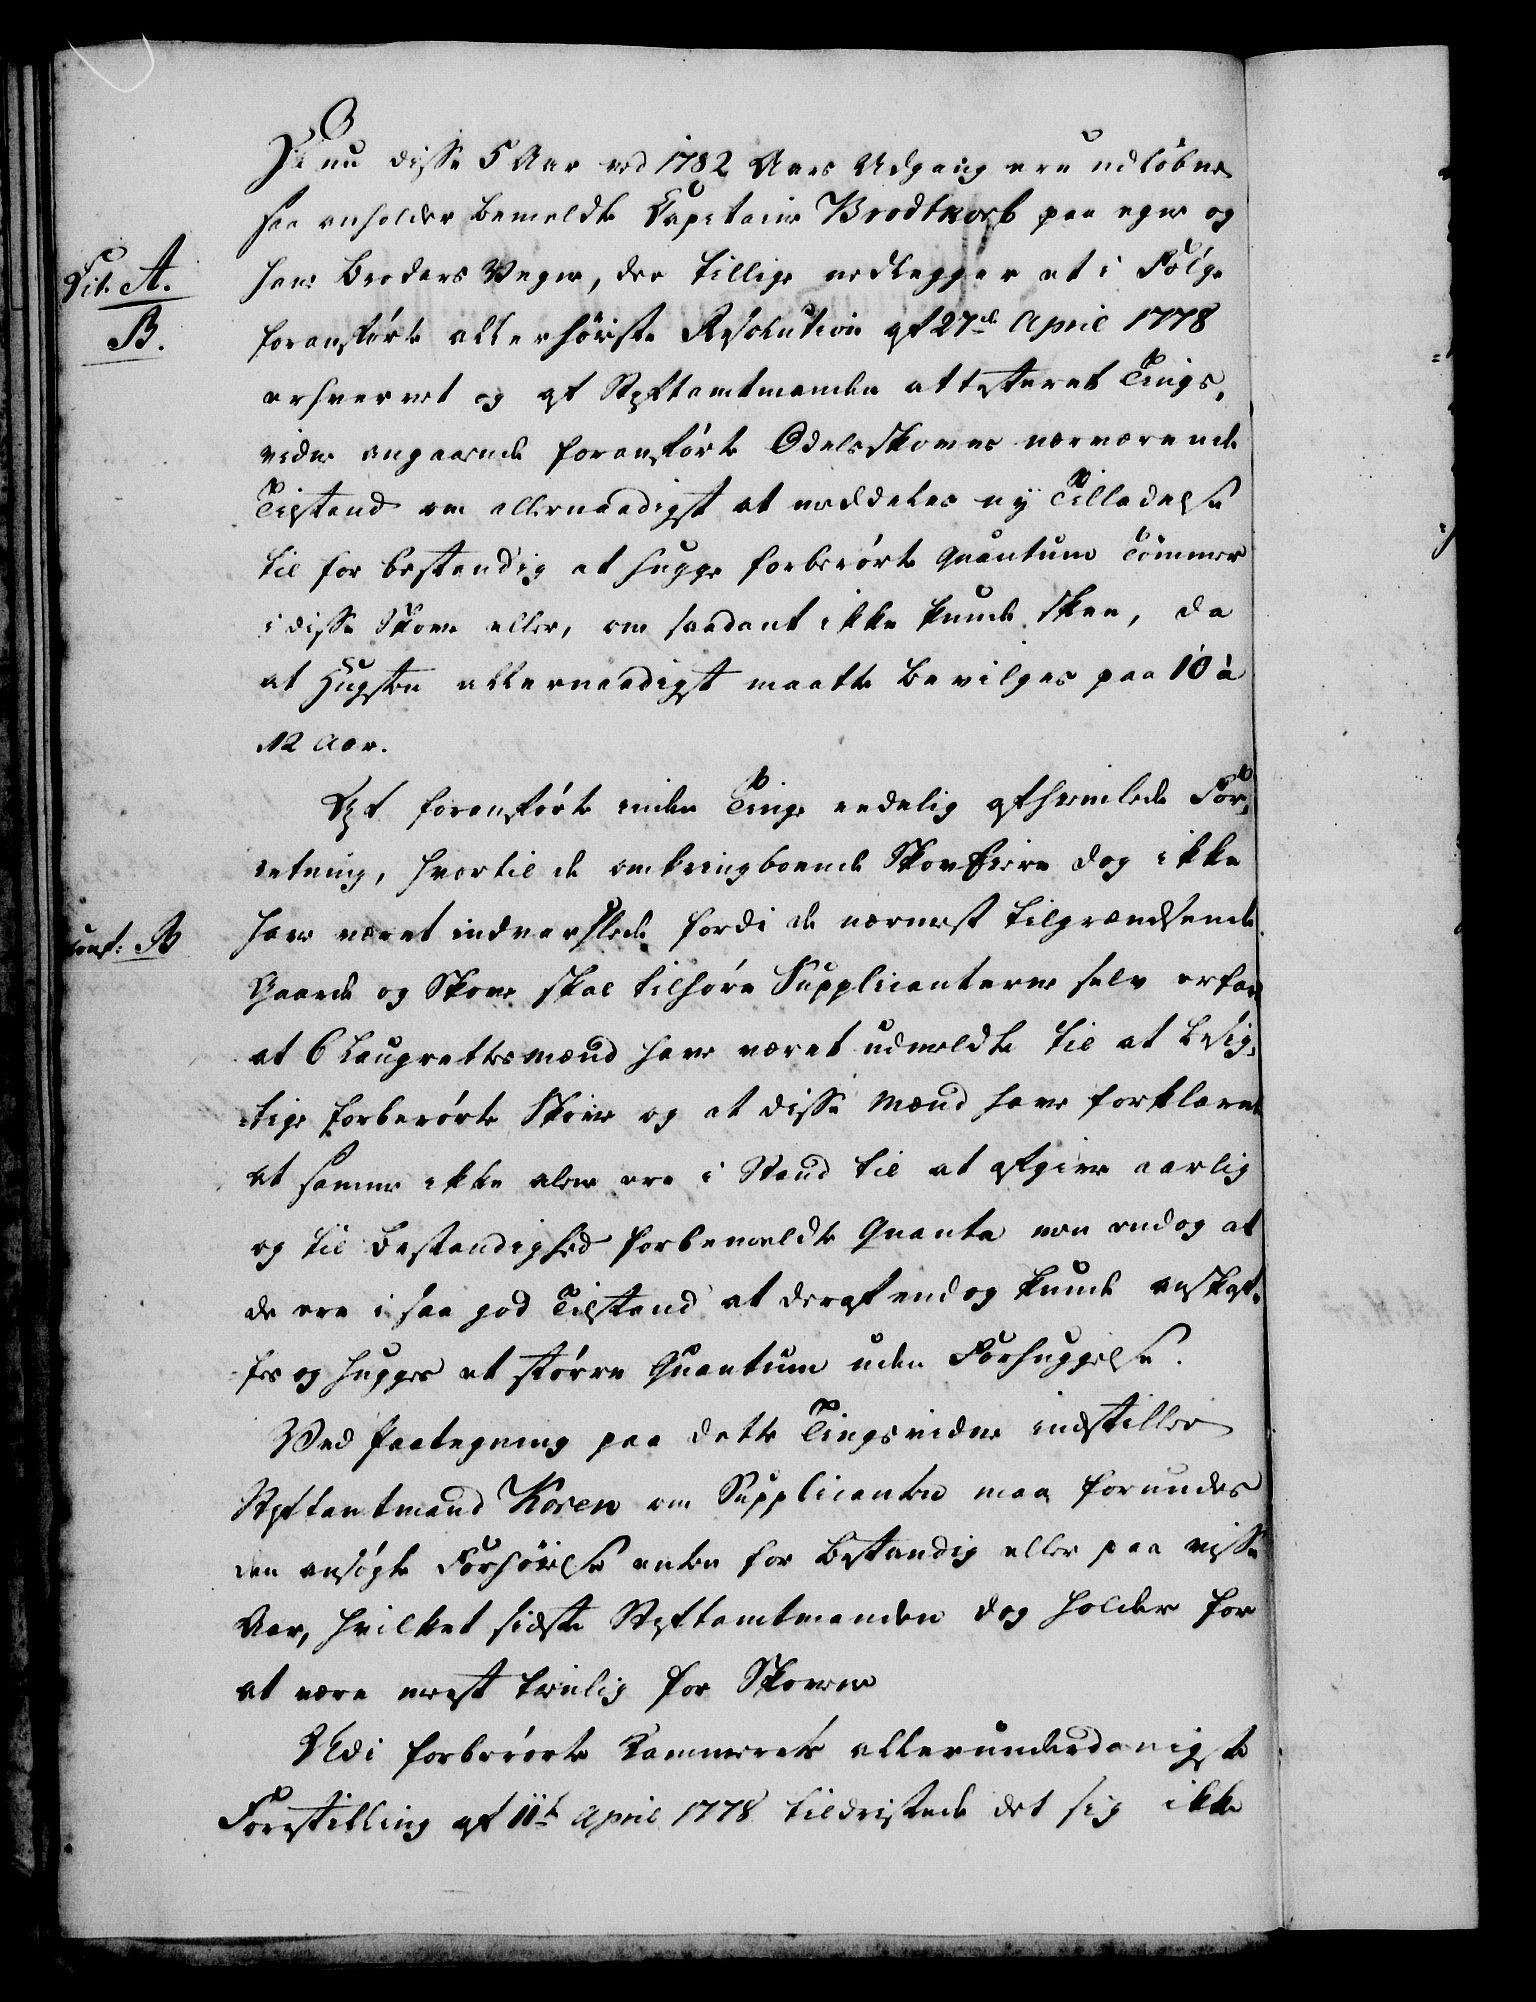 Da nu disse 5 Aar ved 1782 Aars Udgang ere udløbne
saa anholder bemeldte Capitaine Brodtkorb paa egne og
Lit. A.
B.
hans Broders Vegne, der tillige vedlegger et i Følge
foranførte allerhøieste Resolution af 27de April 1778
erhvervet og af Stiftamtmanden attesteret Tings,
vidne angaaende foranførte Odelsskoves nærværende
Tilstand om allernaadigst at meddeles ny Tilladelse
til for bestandig at hugge forberørte Quantum Tømmer
i disse Skove eller, om saadant ikke kunde skee, da
at Hugsten allernaadigst maatte bevilges paa 10 à
12 Aar.
Af foranførte inden Tinge endelig afhiemlede For,
retning, hvortil de omkringboende Skov Eiere dog ikke
conf: B
have været indvarslede fordi de nærmest tilgrændsende
Gaarde og Skove skal tilhøre Supplicanterne selv erfares
at 6 Laugrettesmænd have været udmeldte til at besig,
tige forberørte Skove og at disse Mænd have forklaret
at samme ikke alene ere i Stand til at afgive aarlig
og til Bestandighed forbemeldte Quanta men endog at
de ere i saa god Tilstand at deraf endog kunde anskaf,
fes og hugges et større Quantum uden Forhuggelse.
Ved Paategning paa dette Tingsvidne indstiller
Stiftamtmand Koren om Supplicanten maa forundes
den ansøgte Forhøielse enten for bestandig eller paa visse
Aar, hvilket sidste Stiftamtmanden dog holder for
at være meest tienlig for Skovene
Udi forberørte Kammerets allerunderdanigste
Forestilling af 11te April 1778 tildristede det sig ikke